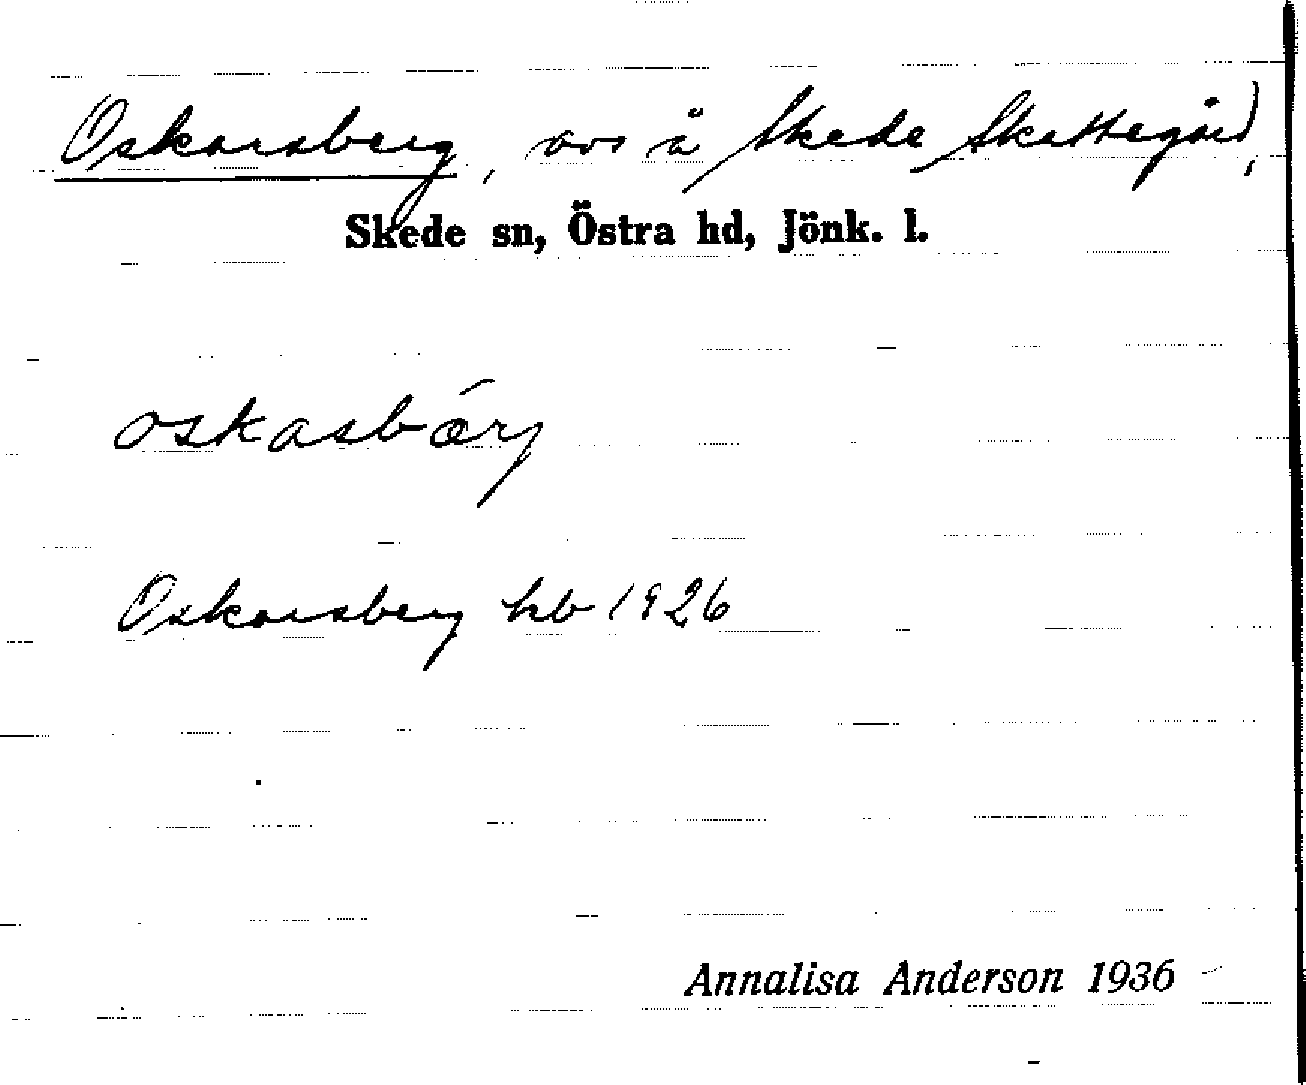 Oskarsberg, avs å Skede Skattegård,
Skede sn, Östra hd, Jönk. l.
oskasbærj
Oskarsberg hb 1926
Annalisa Anderson 1936